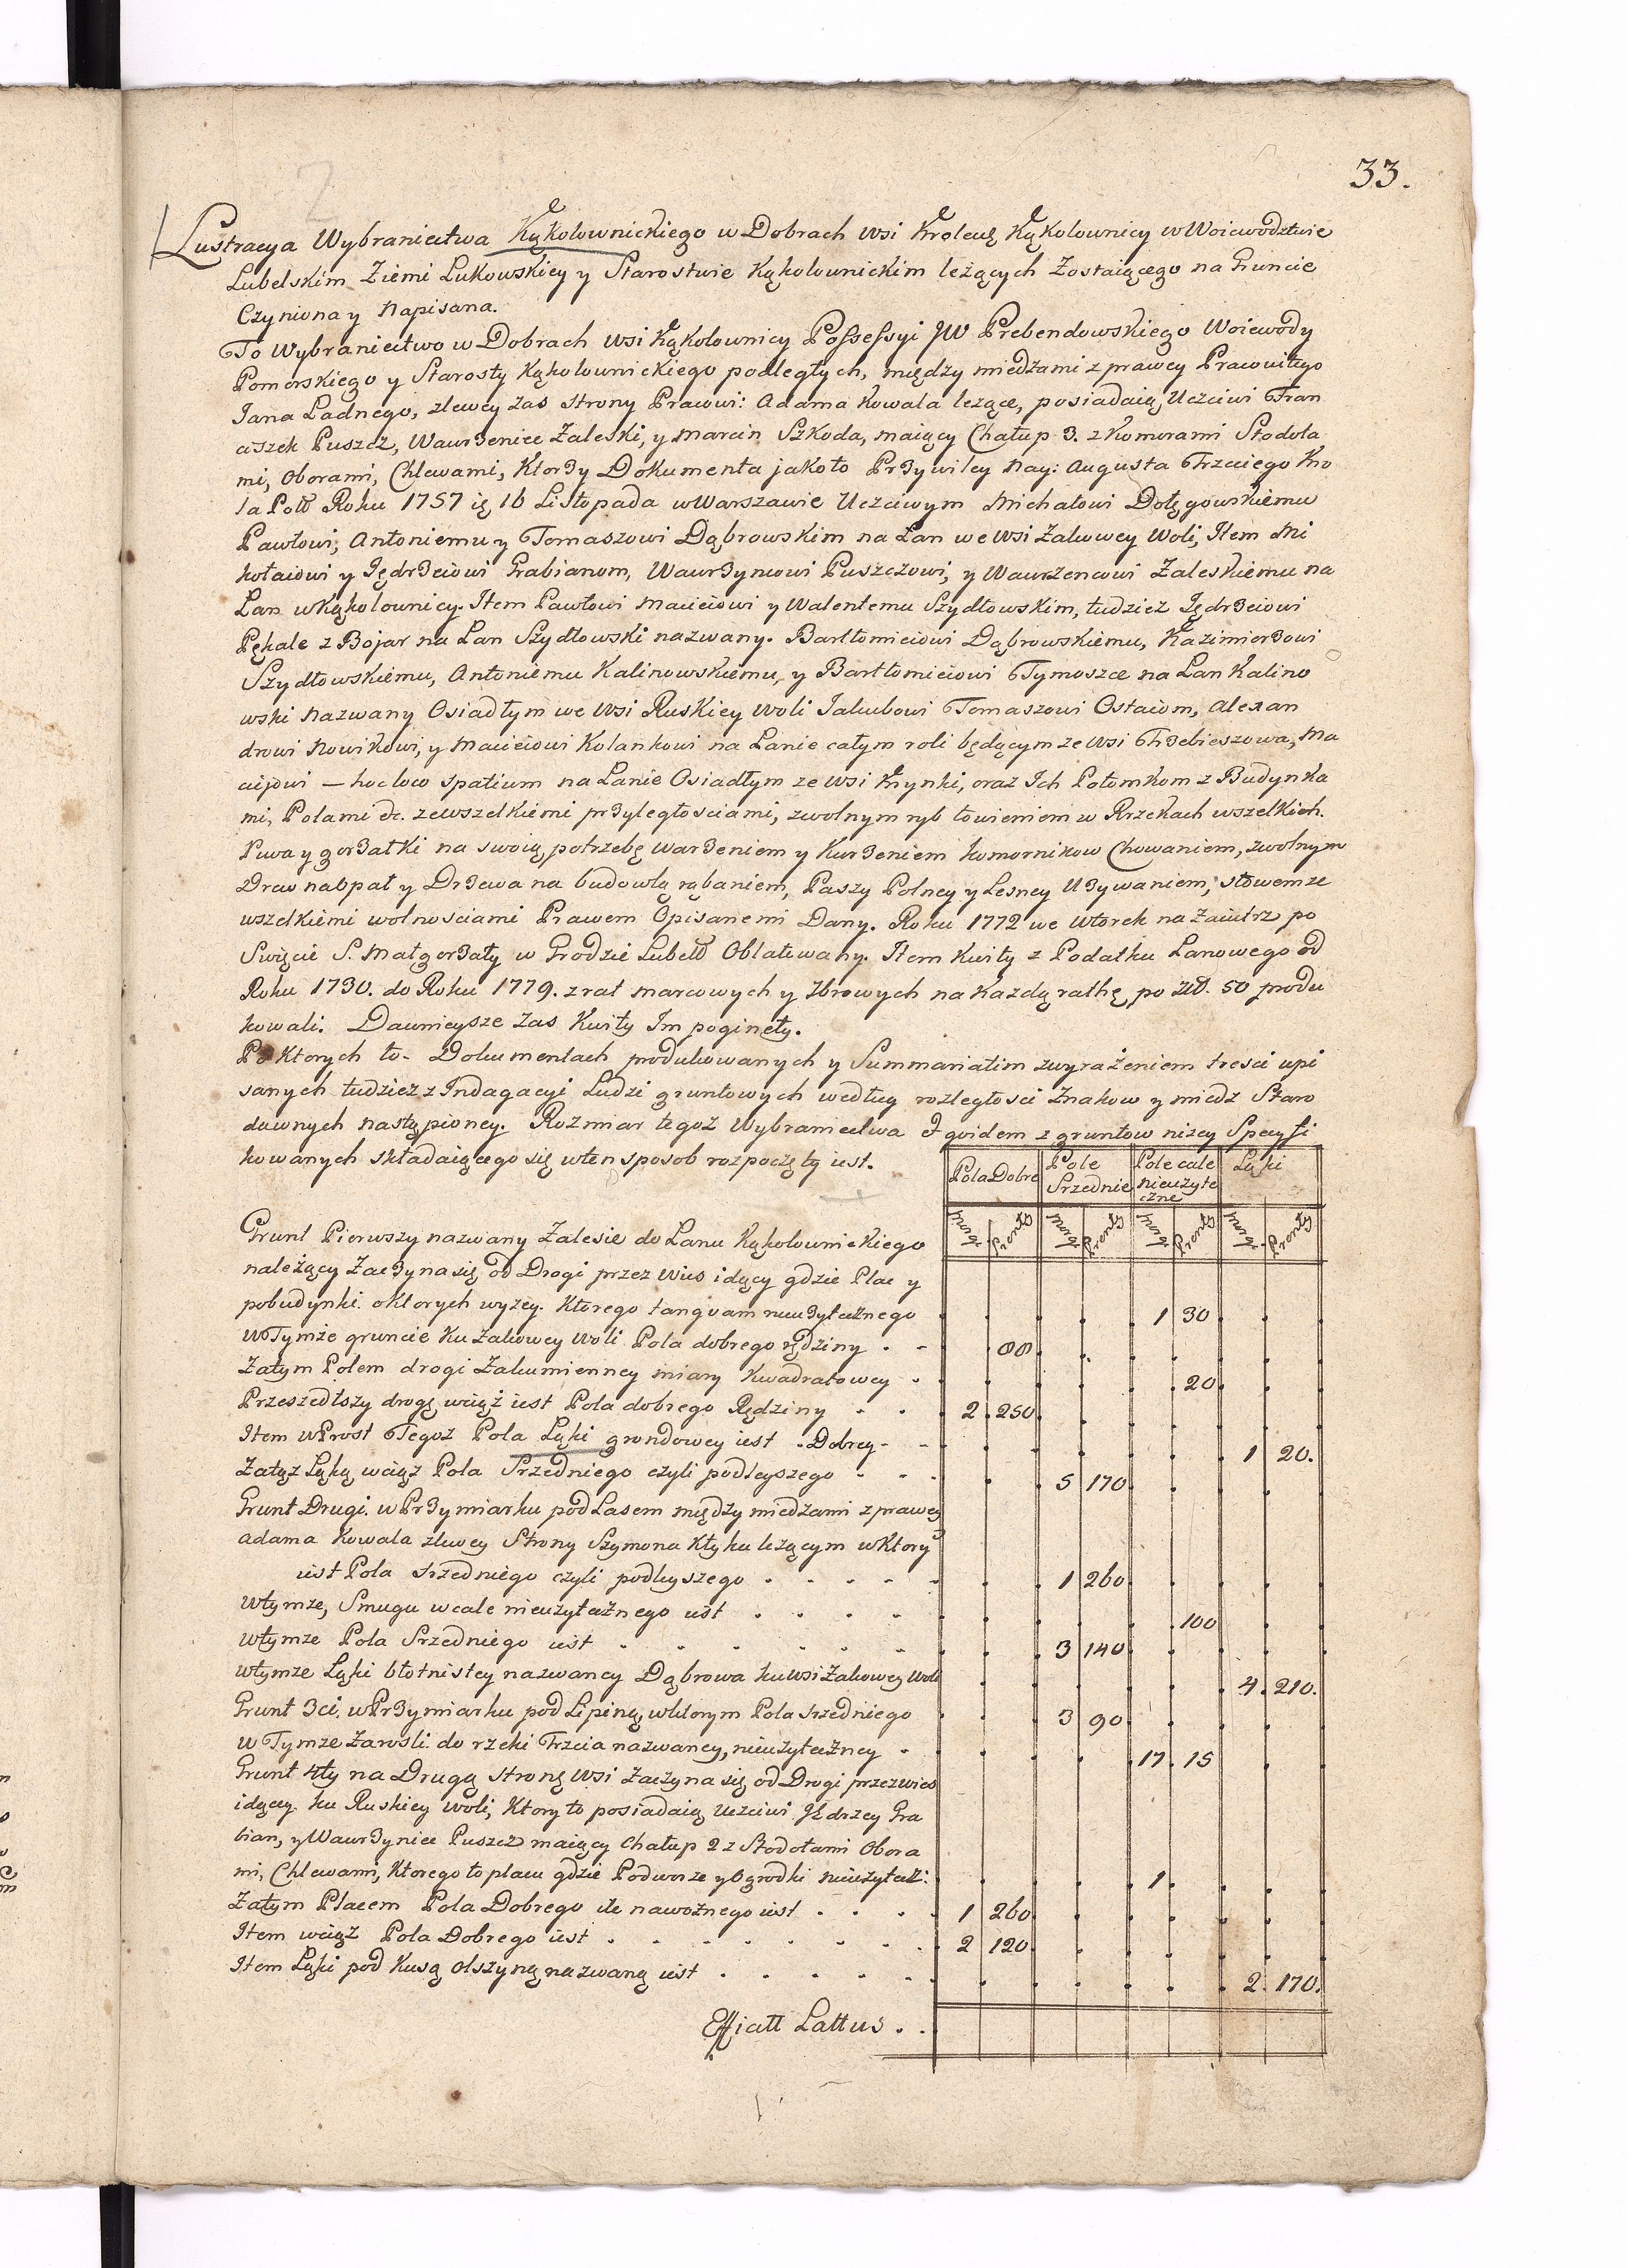 33.
Lustracya Wybraniectwa Kąkolownickiego w Dobrach wsi Krolewę Kąkolownicy w Woiewodztwie
Lubelskim Ziemi Lukowskiey y Starostwie Kąkolownickim leżących Zostaiącego na Gruncie
Czyniona y Napisana.
To Wybraniectwo w Dobrach wsi Kąkolownicy Possessyi JW Prebendowskiego Woiewody
Pomorskiego y Starosty Kąkolownickiego podległych, między miedzami z prawey Pracowitego
Jana Ladnego, zlewey zas strony Pracowi: Adama Kowala leżące, posiadaią Uczciwi Fran
ciszek Puszcz, Wawrzeniec Zaleski, y Marcin Szkoda, maiący Chałup 3. z Komorami Stodoła
mi, Oborami, Chlewami, Ktorzy Dokumenta jako to Przywiley Nay: Augusta Trzeciego Kro
la Pol Roku 1757 ię 16 Listopada w Warszawie Uczciwym Michałowi Dołęgowskiemu
Pawłowi, Antoniemu y Tomaszowi Dąbrowskim na Łan we wsi Zakowey Woli, Item Mi
kołaiowi y Jędrzeiowi Grabianom, Wawrzyncowi Puszczowi, y Wawrzencowi Zaleskiemu na
Łan w Kąkolownicy. Item Pawłowi Macieiowi y Walentemu Szydłowskim, tudziez Jędrzeiowi
Pękale z Bojar na Łan Szydłowski nazwany. Bartłomieiowi Dąbrowskiemu, Kazimierzowi
Szydłowskiemu, Antoniemu Kalinowskiemu, y Bartłomieiowi Tymoszce na Łan Kalino
wski nazwany Osiadłym we wsi Ruskiey Woli Jakubowi Tomaszowi Ostaiom, Alexan
drowi Nowikowi, y Macieiowi Kolankowi na Łanie całym roli będącym ze wsi Trzebieszowa, Ma
cijowi — hoc loco spatium na Łanie Osiadłym ze wsi Krynki, oraz Ich Potomkom z Budynka
mi, Polami &c. zewszelkiemi przyległosciami, zwolnym ryb łowieniem w Rzekach wszelkich.
Piwa y gorzałki na swoią potrzebę warzeniem y Kurzeniem komornikow Chowaniem, zwolnym
Drew na opał y Drzewa na budowlą rąbaniem, Paszy Polney y Lesney Uzywaniem, słowem ze
wszelkiemi wolnosciami Prawem Opisanemi Dany. Roku 1772 we Wtorek na Zaiutrz po
Swięcie S. Małgorzaty w Grodzie Lubel Oblatowany. Item Kwity z Podatku Łanowego od
Roku 1730. do Roku 1779. z rat marcowych y 7browych na każdą rathę po Zł. 50 produ
kowali. Dawnieysze Zas Kwity Im poginęły.
Po Ktorych to- Dokumentach produkowanych y Summariatim zwyrażeniem tresci upi
sanych tudziez z Indagacyi Ludzi gruntowych według rozległosci Znakow y miedz Staro
dawnych nastąpioney. Rozmiar tegoż Wybraniectwa Eqvidem z gruntow nizey Specyfi
kowanych składaiącego się w ten sposob rozpoczęty iest.
Pola Dobre Pole Srzednie Pole cale nieużyteczne Łąki
Morgi Pręty Morgi Pręty Morgi Pręty Morgi Pręty
Grunt Pierwszy nazwany Zalesie do Łanu Kąkolownickiego
należący Zaczyna się od Drogi przez Wies idący gdzie Plac y
pobudynki. o Ktorych wyzey. Ktorego tanqvam nieuzytecznego 1 30
w Tymże gruncie Ku Zakowey Woli Pola dobrego rędziny 88
Zatym Polem drogi Zakumienney miary Kwadratowey 20
Przeszedłszy drogę wciąż iest Pola dobrego Rędziny 2 250
Item w Prost Tegoż Pola Łąki grondowey iest Dobrey 1 20.
Zatąż Łąką wciąż Pola Srzedniego czyli podleyszego 5 170
Grunt Drugi. w Przymiarku pod Lasem między miedzami z prawey
Adama Kowala zlewey Strony Szymona Kłyku leżącym w Ktory
iest Pola srzedniego czyli podleyszego 1 260
Wtymze, Smugu wcale nieuzytecznego iest 100
Wtymze Pola Srzedniego iest 3 140
Wtymze Łąki błotnistey nazwaney Dąbrowa ku wsi Zakowey Woli 4. 210.
Grunt 3ci. w Przymiarku pod Lipiną, w ktorym Pola srzedniego 3 90
w Tymze Zarosli. do rzeki Trzcia nazwaney, nieużyteczney 17. 15
Grunt 4ty na Drugą stronę wsi Zaczyna się od Drogi przez wies
idącey ku Ruskiey Woli, Ktory to posiadaią Uczciwi Jędrzey Gra
bian, y Wawrzyniec Puszcz maiący chałup 2 z Stodołami Obora
mi, Chlewami, Ktorego to placu gdzie Podworze y Ogrodki nieużytecz: 1.
Zatym Placem Pola Dobrego ile nawoźnego iest 1 260
Item wciąż Pola Dobrego iest 2 120
Item Łąki pod Kusą Olszyną nazwaną iest 2. 170.
Efficiatt Lattus